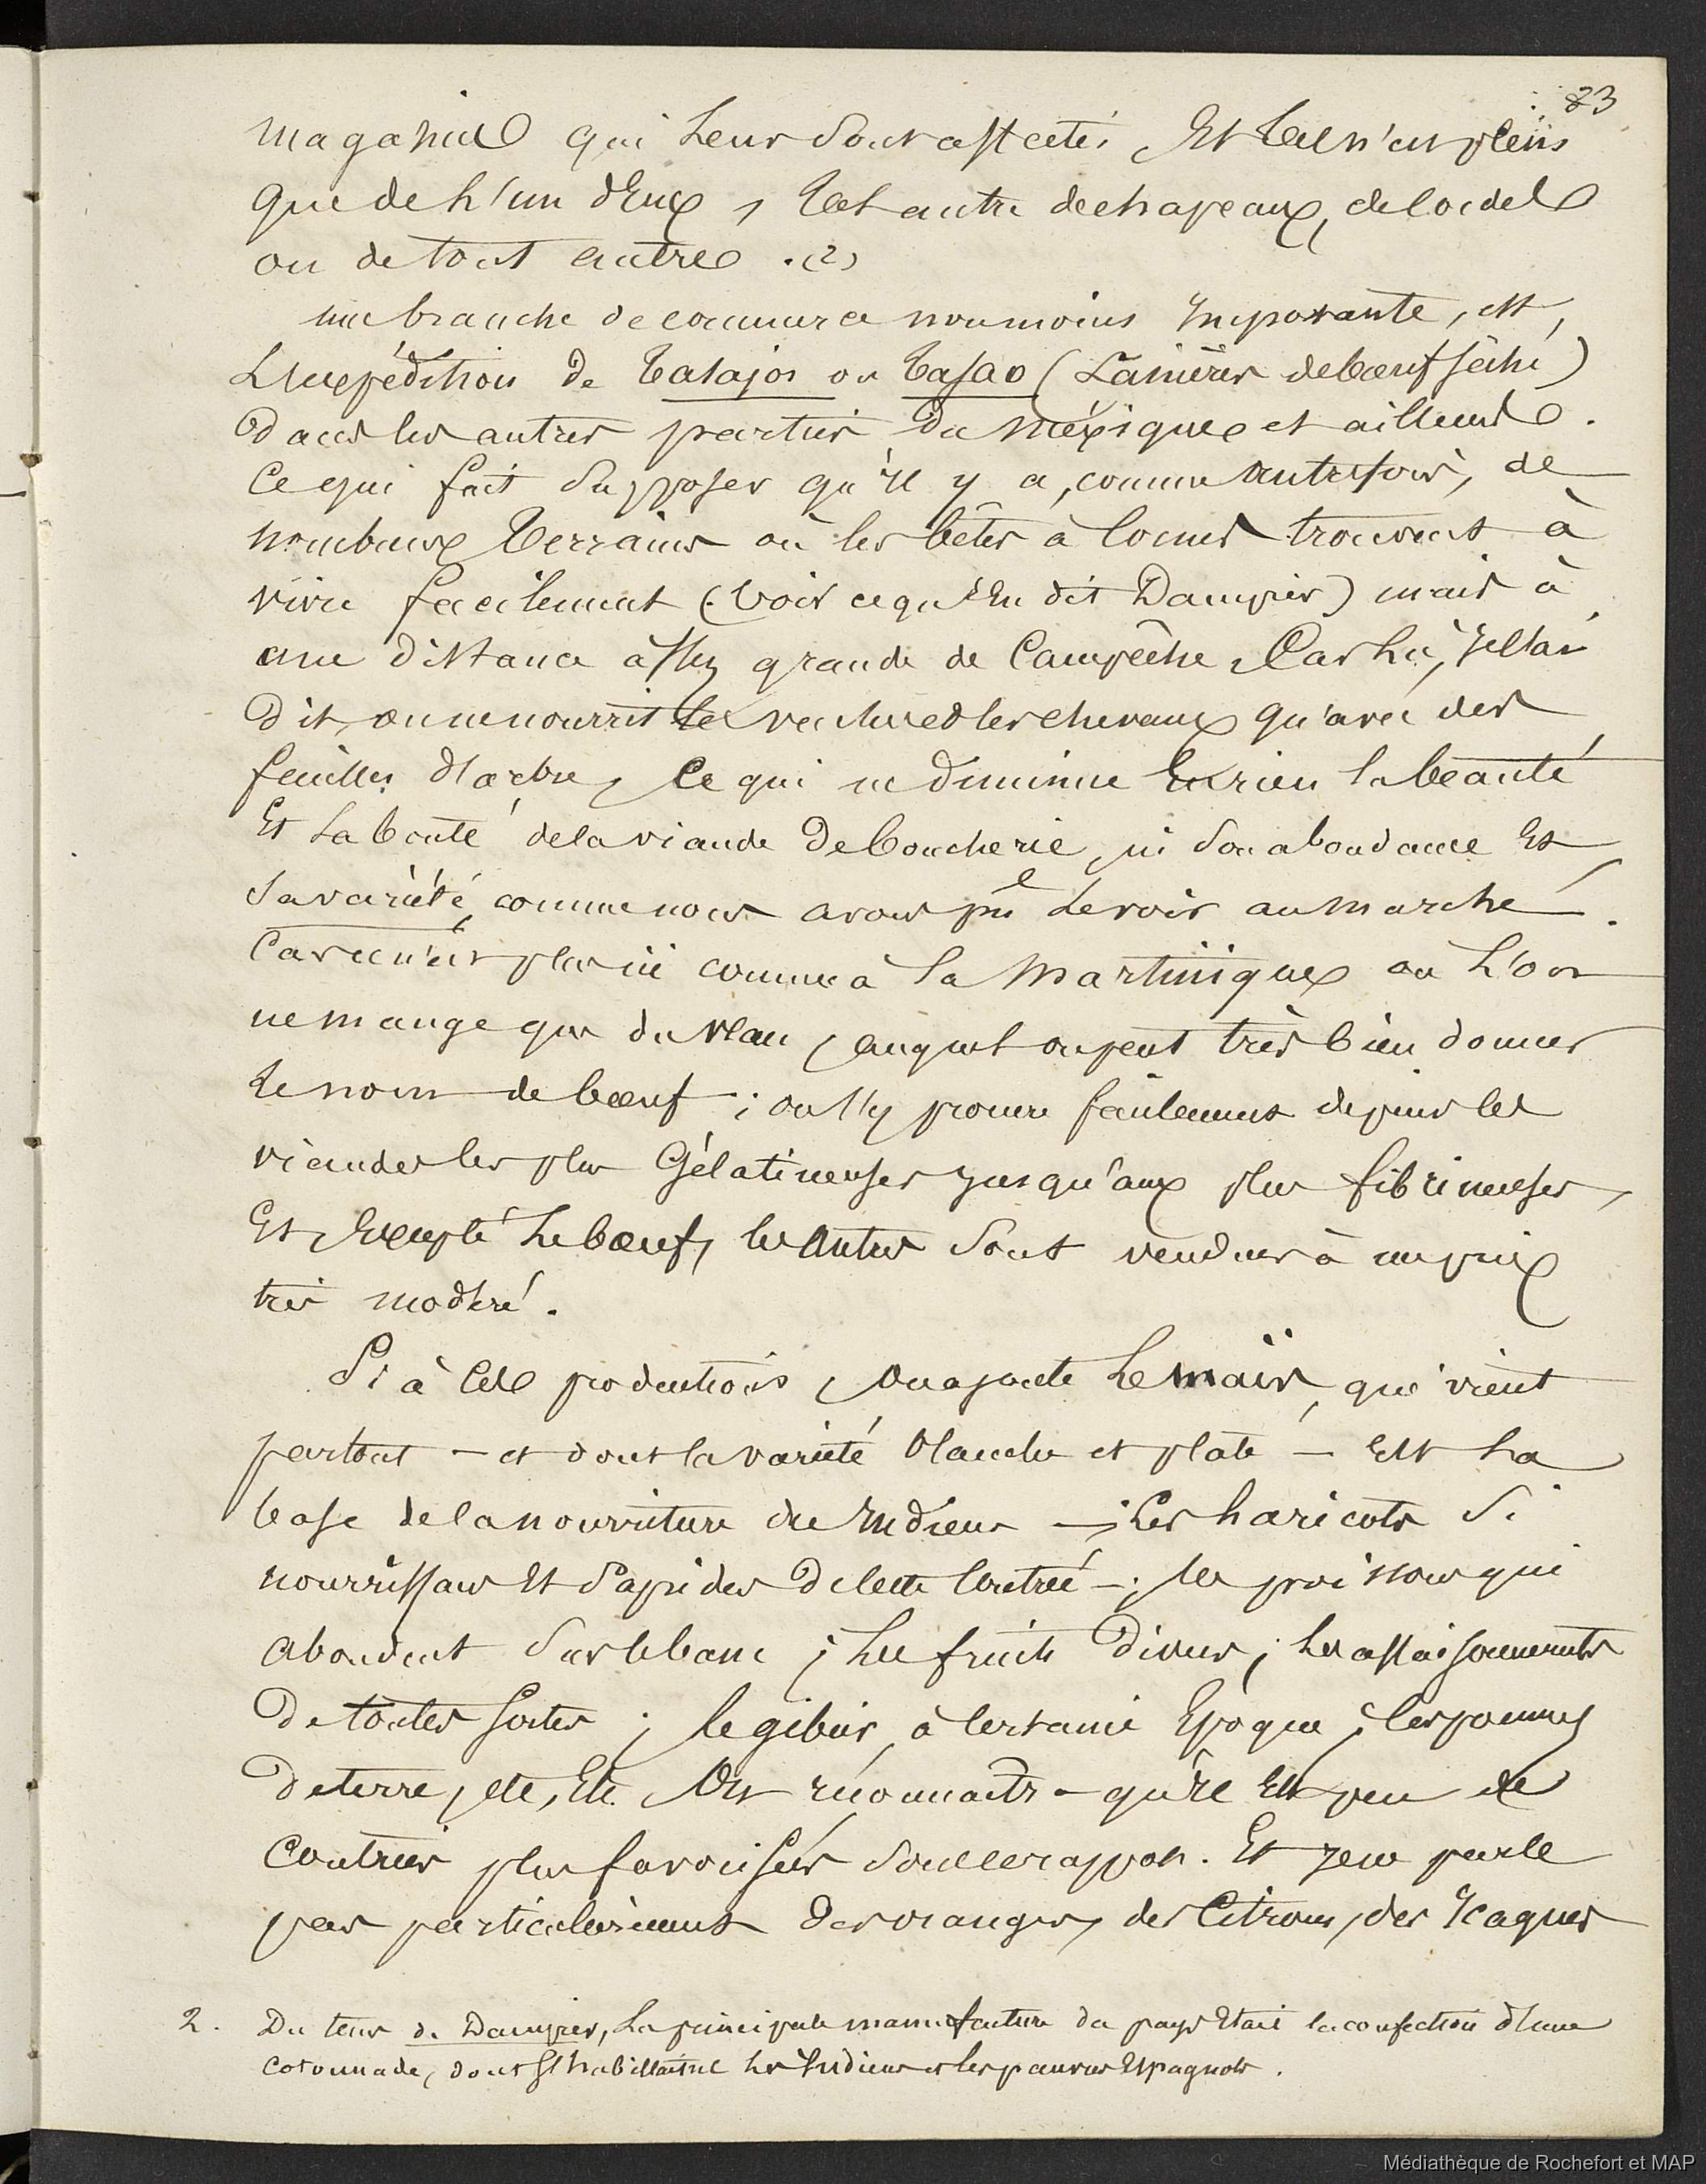 83
magasins qui leur sont affectés et tel n'est plein
que de l'un d'eux, tel autre de chapeaux, de cordes
ou de tout autre . (2)
une branche de commerce non moins importante, est,
L'expédition de Tasajos ou Tasao (Lanières de bœuf séché)
dans les autres parties du Mexique et ailleurs.
Ce qui fait supposer qu'il y a, comme autrefois, de
nombreux terrains où les bêtes à cornes trouvent à
vivre facilement (voir ce qu'en dit Dampier) mais à
une distance assez grande de Campêche, Car là,
dit, on ne nourrit les vaches et les chevaux qu'avec des
feuilles d'arbre, ce qui ne diminue en rien la beauté
Et la bonté de la viande de boucherie, ni son abondance Et
sa variété, comme nous avons pu le voir au marché.
Car ce n'est plus ici comme à la Martinique où l'on
ne mange que du veau, auquel on peut très bien donner
le nom de bœuf ; on s'y procure facilement depuis les
viandes les plus Gélatineuses jusqu'aux plus fibrineuses,
Et, Excepté le bœuf, les autres sont vendues à un prix
très modéré.
Si à ces productions, on ajoute le maïs, qui vient
partout — et dont la variété blanche et plate — est la
base de la nourriture des Indiens — ; les haricots si
nourrissants et sapides de cette contrée — ; les poissons qui
abondent sur le banc ; les fruits divers ; les assaisonnements
de toutes sortes ; le gibier, à certaine Epoque ; les pommes
de terre, etc, Etc. On reconnaîtra qu'il est peu de
contrées plus favorisées sous ce rapport. Et je ne parle
pas particulièrement des oranges, des Citrons, des Icaques
2. Du tems de Dampier, la principale manufacture du pays Etait la confection d'une
cotonnade, dont s'habillaient les Indiens et les pauvres Espagnols.
Médiathèque de Rochefort et MAP